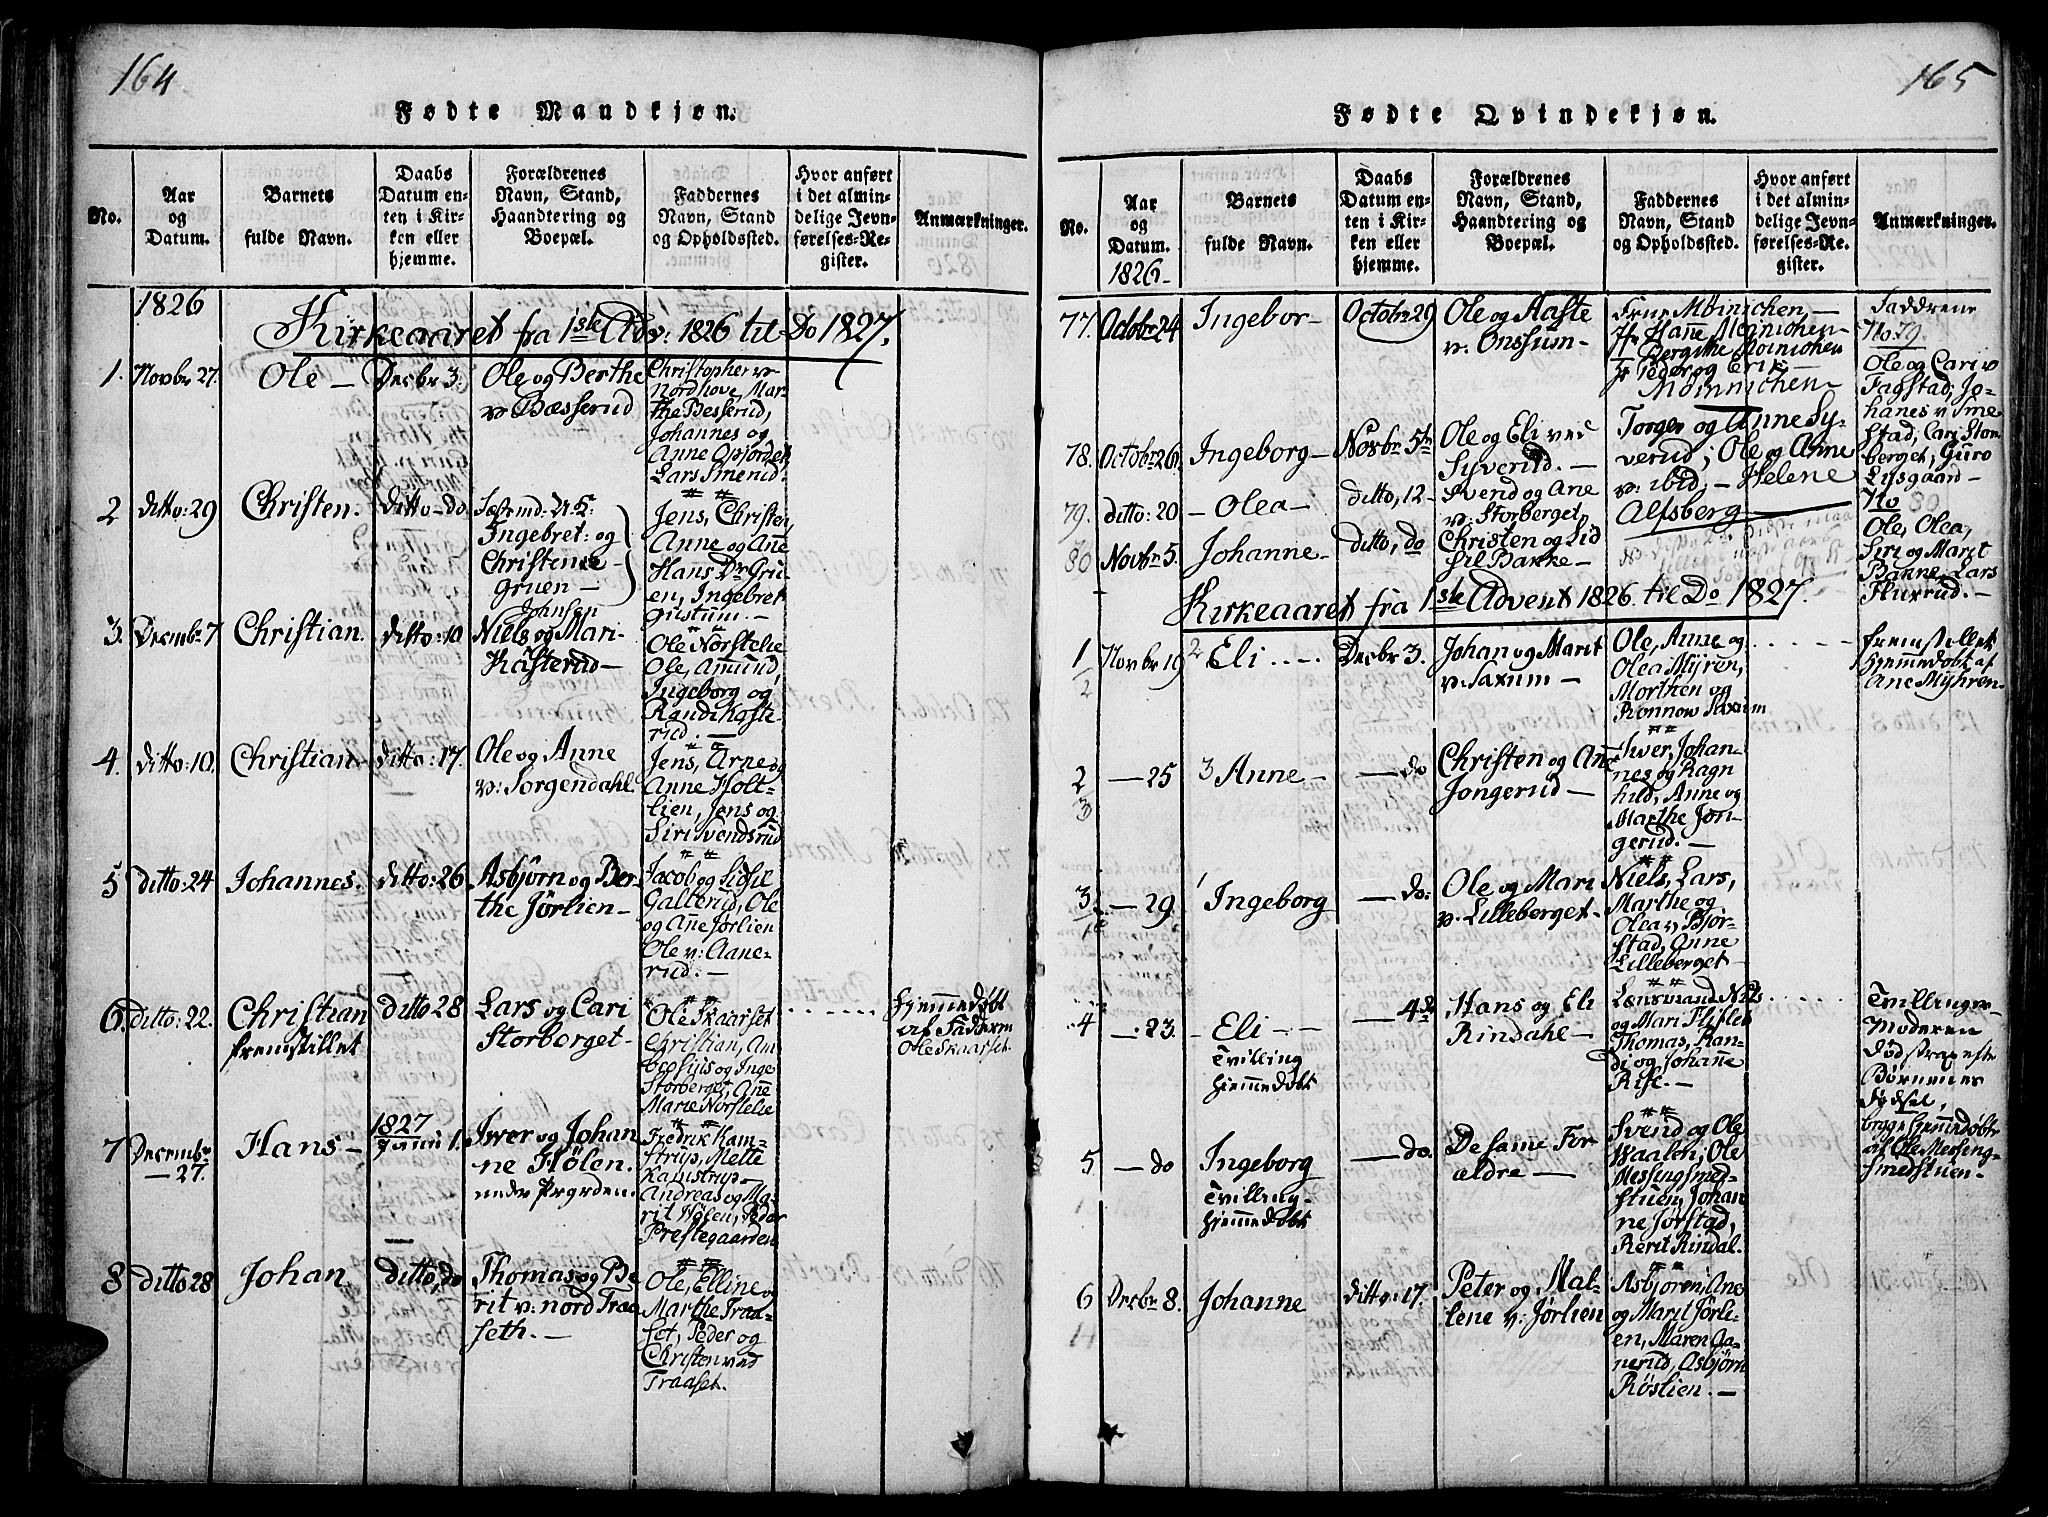 164
Fødte Mandkjøn.
No.
Aar
og
Datum.
Barnets
fulde Navn.
Daabs
Datum en-
ten i Kir-
ken eller
hjemme.
Forældrenes
Navn, Stand,
Haandtering og
Boepæl.
Faddernes
Navn, Stand
og Opholdssted.
Hvor anført
i det almin-
delige Jevn-
førelses-Re-
gister.
Anmærkninger.
1826
Kirkeaaret fra 1ste Adv: 1826 til Do 1827.
1.
Novbr 27.
Ole —
Decbr 3.
Ole og Berthe
v Bæsserud
Christopher v
Nordhove, Mar-
the Besserud,
Johannes og
Anne Opjordet
Lars Smerud.
2
ditto: 29
Christen.
ditto — do
Ingebret: og
Christense
Gruen —
Jens, Christen,
Anne og Ane
Hans Dr Gru-
en, Ingebret
Gustum. —
3.
Decembr 7
Christian.
ditto: 10
Johnsen
Niels og Mari
Kasterud —
Ole Norstelie
Ole, Amund,
Ingeborg og
Randi Kaste-
rud. —
4.
ditto: 10.
Christian —
ditto: 17.
Ole og Anne
v: Sorgendahl.
Jens, Arne og
Anne Holt-
lien, Jens og
Siri Svendsrud
5
ditto: 24
Johannes.
ditto: 26
Asbjørn og Ber-
the Jørlien —
Jacob og Sidsil
Galterud, Ole
og Ane Jørlien
Ole v: Aane-
rud. —
6.
ditto: 22.
Christian
fremstillet
ditto 28
Lars og Cari
Storberget —
Ole Skaarset
Christian, Am-
brosius og Inge
Storberget, Ane
Marie Norstelie
hjemmedøbt
af Fadderen
Ole Skaarset.
7
Decembr
— 27.
Hans —
1827
Januii 1.
Iwer og Johan
ne Hølen.
under Prgrden.
Fredrik Kam-
strup, Mette
Kamstrup —
Andreas og Ma-
rit Hølen, Peder
Prestegaarden
8
ditto 28
Johan
ditto, do
Thomas og Be
rit v: nord Traa
seth. —
Ole, Elline og
Marthe Traa-
set, Peder og
Christen ved
Traaset.
165
Fødte Qvindekjøn.
No.
Aar
og
Datum.
1826 —
Barnets
fulde Navn.
Daabs
Datum en-
ten i Kir-
ken eller
hjemme.
Forældrenes
Navn, Stand,
Haandtering og
Boepæl.
Faddernes
Navn, Stand
og Opholdssted.
Hvor anført
i det almin-
delige Jevn-
førelses-Re-
gister.
Anmærkninger.
77.
Octobr 24
Ingebor —
Octobr 29
Ole og Aaste
v: Onssum —
Frue Møinichen —
Jfr Hanne Møinichen —
Bergithe Møinichen
Peder og Erik —
Møinnichen —
Faddrene
No: 79.
Ole og Cari v
Fagstad, Jo-
hanes v Sme
stad, Cari Stor
berget, Guro
Lysgaard —
78.
Octobr 26.
Ingeborg —
Novbr 5te
Ole og Eli ved
Syverud. —
Torger og Anne Sy-
verud, Ole og Anne
v: ibid. — Helene
Alfsberg —
79.
ditto: 20
— Olea —
ditto, 12 —
Svend og Ane
v: Storberget,
No
80
Ole, Olea,
Siri og Marit
Bakke, Lars
Fluxrud. —
80
Novbr 5.
Johanne —
ditto, do
Christen og Sid
sil Bakke —
Kirkeaaret fra 1ste Advent 1826 til Do 1827.
1
2
Novbr 19
2 Eli ....
Decbr 3.
Johan og Marit
v: Saxum —
Ole, Anne og
Olea Myren,
Morthen og
Rønnow Saxum
fremstillet
hjemmedøbt af
Ane Myhren.
2
3
— 25
3 Anne —
— do
Christen og Ane
Jongerud —
Iwer, Johan-
nes og Ragn
hild, Anne og
Marthe Jon-
gerud. —
3
1
— 29
1 Ingeborg
— do:
Ole og Mari
v: Lilleberget —
Niels, Lars,
Marthe og
Olea v: Bjør-
stad, Anne
Lilleberget —
4
— 23.
— Eli —
Tvilling
hjemmedøbt
— 4de
Hans og Eli
Rindahl —
Lensmand Nils
og Mari Fliflet
Thomas, Ran-
di og Johane
Rise. —
Tvillinger
Moderen
død strax efter
Børnenes
fødsel,
begge hjemmedøbte
af Ole Messing-
smedstuen —
5
— do
Ingeborg
Tvilling —
hjemmedøbt
— do.
De same For
ældre —
Svend og Ole
Haalen, Ole
Messingsmed-
stuen, Johan
ne Jørstad,
Berit Rindal.
6
Decbr 8.
Johanne
ditto: 17.
Peter og Mal-
lene v: Jørlien
Asbjøren, Ane
og Marit Jørli-
en, Maren Aa-
nerud, Asbjørn
Røslien. —